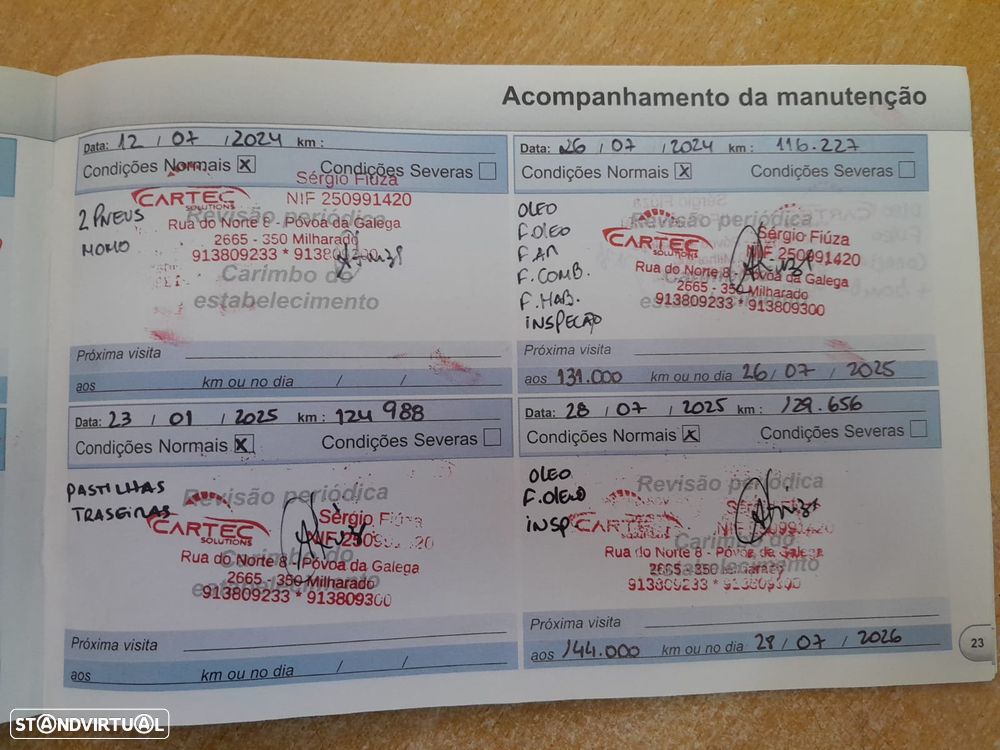 Acompanhamento da manutenção
Data: 12 / 07 / 2024 km :
Condições Normais X Condições Severas
Sérgio Fiúza
CARTEC NIF 250991420
SOLUTIONS
2 PNEUS Revisão periódica
Rua do Norte 8 - Póvoa da Galega
2665 - 350 Milharado
913809233 * 913809300
Carimbo do
estabelecimento
Próxima visita
aos km ou no dia / /
Data: 26 / 07 / 2024 km : 116.227
Condições Normais X Condições Severas
OLEO
F.OLEO
F AR
F. COMB.
F. HAB.
INSPEÇÃO
Revisão periódica
CARTEC Sérgio Fiúza
SOLUTIONS NIF 250991420
Rua do Norte 8 - Póvoa da Galega
2665 - 350 Milharado
913809233 * 913809300
Próxima visita
aos 131.000 km ou no dia 26 / 07 / 2025
Data: 23 / 01 / 2025 km : 124 988
Condições Normais X Condições Severas
PASTILHAS
TRASEIRAS
Revisão periódica
CARTEC Sérgio Fiúza
SOLUTIONS
Rua do Norte 8 - Póvoa da Galega
Carimbo do
estabelecimento
2665 - 350 Milharado
913809233 * 913809300
Próxima visita
aos km ou no dia / /
Data: 28 / 07 / 2025 km : 129.656
Condições Normais X Condições Severas
OLEO
F. OLEO
INSP
Revisão periódica
CARTEC
NIF 250991420
Rua do Norte 8 - Póvoa da Galega
Carimbo do
estabelecimento
2665 - 350 Milharado
913809233 * 913809300
Próxima visita
aos 144.000 km ou no dia 28 / 07 / 2026
23
STANDVIRTUAL